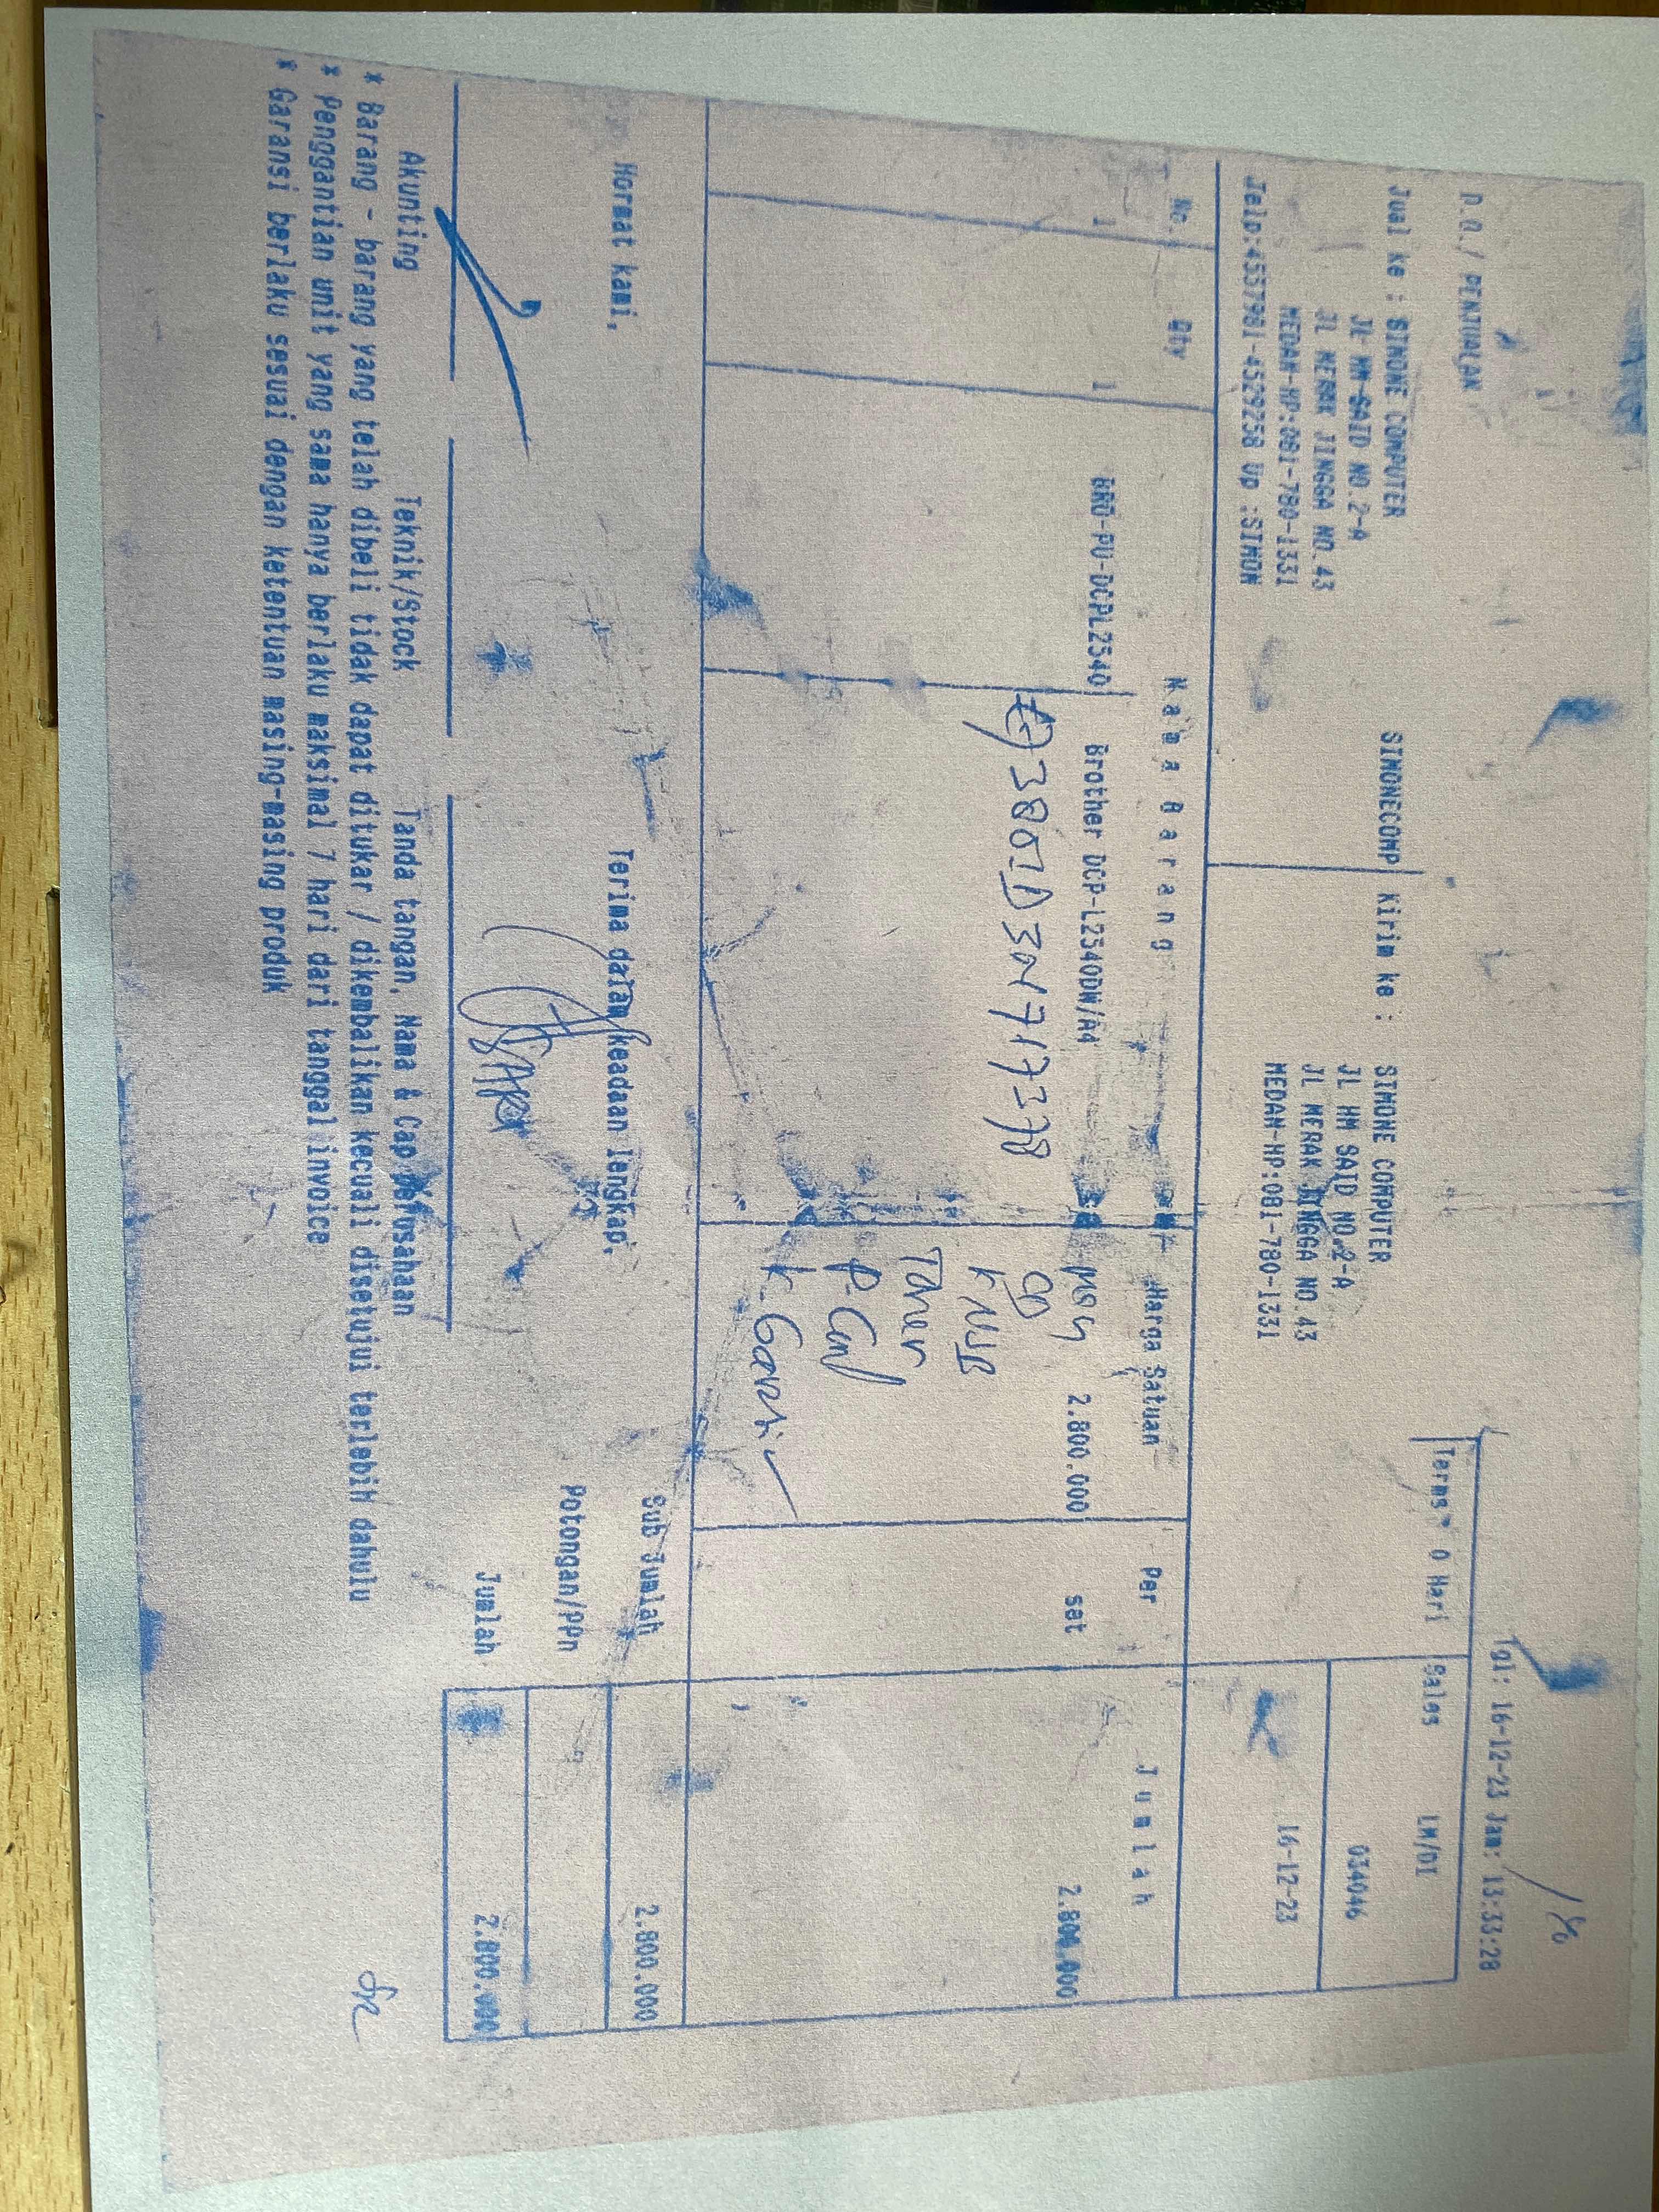 D.O./ PENJUALAN
Tgl: 16-12-23 Jam: 13:33:28
Jual ke : SIMONE COMPUTER SIMONECOMP
JL HM SAID NO.2-A
JL MERAK JINGGA NO.43
MEDAN-HP:081-780-1331
Telp:4557981-4529258 Up :SIMON
Kirim ke : SIMONE COMPUTER
JL HM SAID NO.2-A
JL MERAK JINGGA NO.43
MEDAN-HP:081-780-1331
Terms 0 Hari Sales LM/DI
034046
16-12-23
No. Qty Nama Barang Harga Satuan Per Jumlah
1 1 BRO-PU-DCPL2540 Brother DCP-L2540DW/A4 2.800.000 set 2.800.000
CD
K USB
Toner
K. Garansi
Hormat kami, Terima dalam keadaan lengkap,
Sub Jumlah 2.800.000
Potongan/PPn
Jumlah 2.800.000
Akunting Teknik/Stock Tanda tangan, Nama & Cap Perusahaan
* Barang - barang yang telah dibeli tidak dapat ditukar / dikembalikan kecuali disetujui terlebih dahulu
* Penggantian unit yang sama hanya berlaku maksimal 7 hari dari tanggal invoice
* Garansi berlaku sesuai dengan ketentuan masing-masing produk